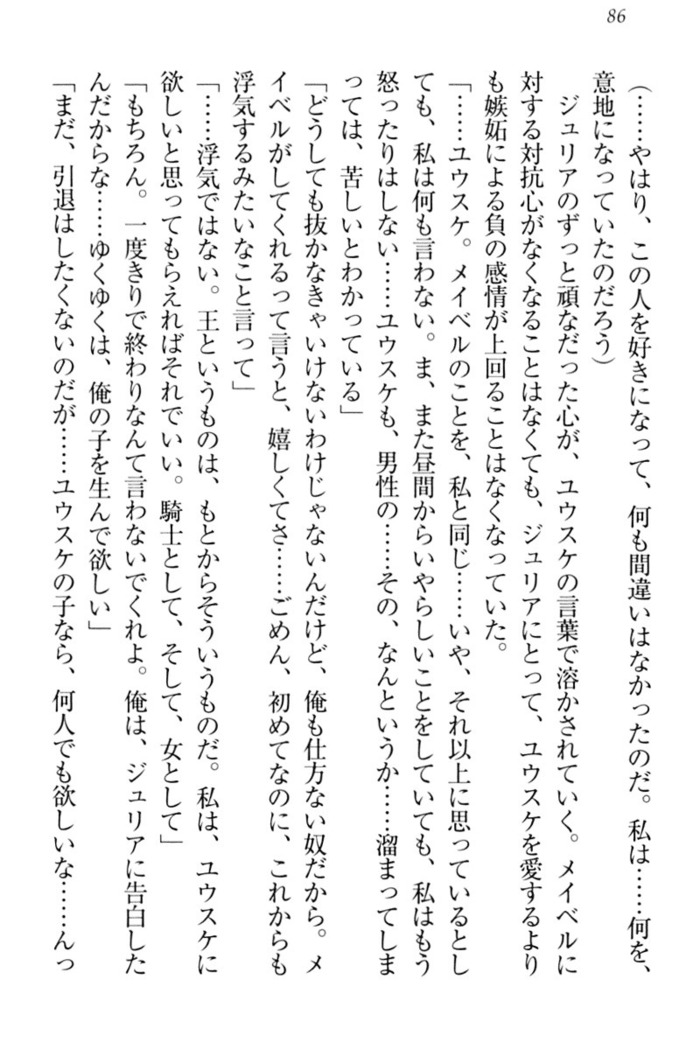 86
(……やはり、この人を好きになって、何も間違いはなかったのだ。私は……何を、
意地になっていたのだろう)
ジュリアのずっと頑なだった心が、ユウスケの言葉で溶かされていく。メイベルに
対する対抗心がなくなることはなくても、ジュリアにとって、ユウスケを愛するより
も嫉妬による負の感情が上回ることはなくなっていた。
「……ユウスケ。メイベルのことを、私と同じ……いや、それ以上に思っているとし
ても、私は何も言わない。ま、また昼間からいやらしいことをしていても、私はもう
怒ったりはしない……ユウスケも、男性の……その、なんというか……溜まってしま
っては、苦しいとわかっている」
「どうしても抜かなきゃいけないわけじゃないんだけど、俺も仕方ない奴だから。メ
イベルがしてくれるって言うと、嬉しくてさ……ごめん、初めてなのに、これからも
浮気するみたいなこと言って」
「……浮気ではない。王というものは、もとからそういうものだ。私は、ユウスケに
欲しいと思ってもらえればそれでいい。騎士として、そして、女として」
「もちろん。一度きりで終わりなんて言わないでくれよ。俺は、ジュリアに告白した
んだからな……ゆくゆくは、俺の子を生んで欲しい」
「まだ、引退はしたくないのだが……ユウスケの子なら、何人でも欲しいな……んっ